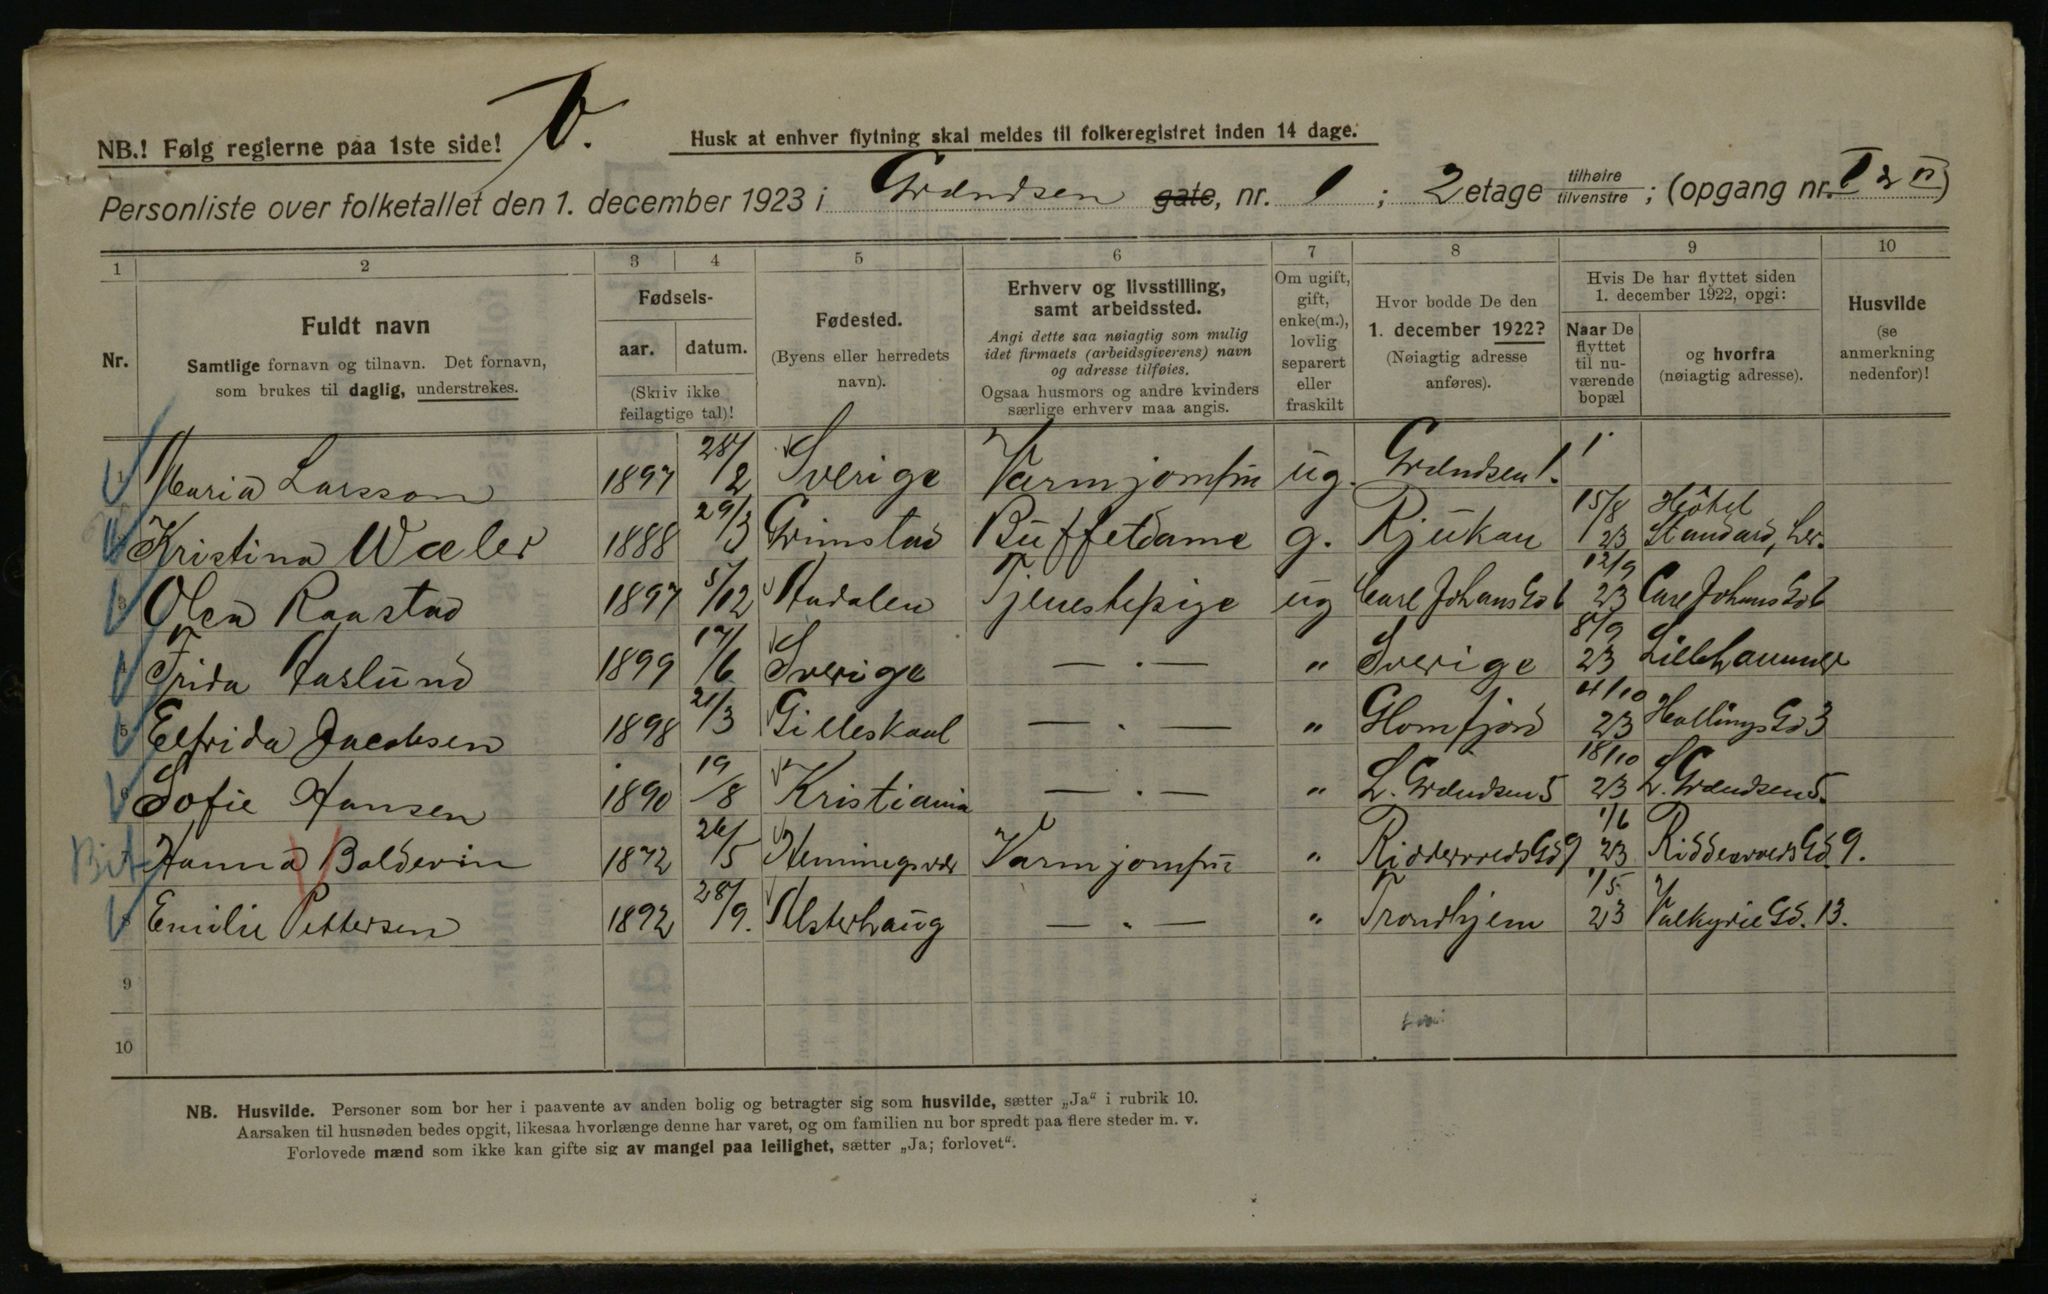 NB.! Følg reglerne paa 1ste side!
Husk at enhver flytning skal meldes til folkeregistret inden 14 dage.
Personliste over folketallet den 1. december 1923 i Grændsen gate, nr. 1; 2 etage tilhøire tilvenstre; (opgang nr. )
1 2 3 4 5 6 7 8 9 10
Nr.
Fuldt navn
Samtlige fornavn og tilnavn. Det fornavn,
som brukes til daglig, understrekes.
Fødsels-
aar. datum.
(Skriv ikke
feilagtige tal)!
Fødested.
(Byens eller herredets
navn).
Erhverv og livsstilling,
samt arbeidssted.
Angi dette saa nøiagtig som mulig
idet firmaets (arbeidsgiverens) navn
og adresse tilføies.
Ogsaa husmors og andre kvinders
særlige erhverv maa angis.
Om ugift,
gift,
enke(m.),
lovlig
separert
eller
fraskilt
Hvor bodde De den
1. december 1922?
(Nøiagtig adresse
anføres).
Hvis De har flyttet siden
1. december 1922, opgi:
Naar De
flyttet
til nu-
værende
bopæl
og hvorfra
(nøiagtig adresse).
Husvilde
(se
anmerkning
nedenfor)!
1 Maria Larsson 1897 28/2 Sverige Varmjomfru ug. Grændsen 1.
2 Kristina Wæler 1888 29/3 Grimstad Buffetdame g. Rjukan 15/8 23 Hôtel Standard, her.
3 Olea Raastad 1897 5/12 Aadalen Tjenestepige ug Carl Johans Gd 6 12/9 23 Carl Johans Gd 6
4 Frida Aaslund 1899 17/6 Sverige — . — „ Sverige 8/9 23 Lillehammer
5 Elfrida Jacobsen 1898 21/3 Gilleskaal — . — „ Glomfjord 4/10 23 Hallings Gd 3
6 Sofie Hansen 1890 19/8 Kristiania — . — „ L. Grændsen 5 18/10 23 L. Grændsen 5.
7 Hanna Baldevin 1872 26/5 Henningsvær Varmjomfru „ Riddervolds Gd 9 1/6 23 Riddervolds Gd 9.
8 Emilie Pettersen 1892 28/9. Alsterhaug — . — „ Trondhjem 1/5 23 Valkyrie Gd. 13.
9
10
NB. Husvilde. Personer som bor her i paavente av anden bolig og betragter sig som husvilde, sætter „Ja“ i rubrik 10.
Aarsaken til husnøden bedes opgit, likesaa hvorlænge denne har varet, og om familien nu bor spredt paa flere steder m. v.
Forlovede mænd som ikke kan gifte sig av mangel paa leilighet, sætter „Ja; forlovet“.